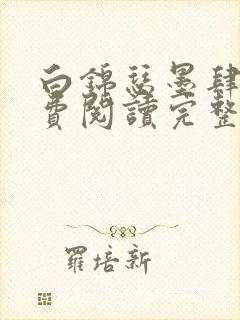 白錦瑟墨肆
費閱讀完整
羅培新